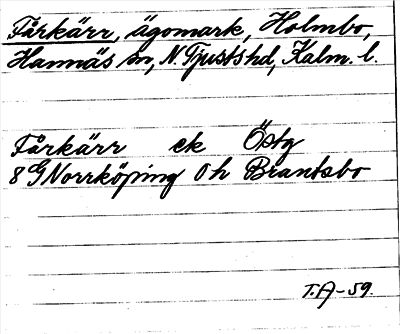 Fårkärr, ägomark, Holmbo,
Hannäs sn, N. Tjusts hd, Kalm. l.
Fårkärr ek Östg
8 G Norrköping 0 h Brantsbo
T.A-59.